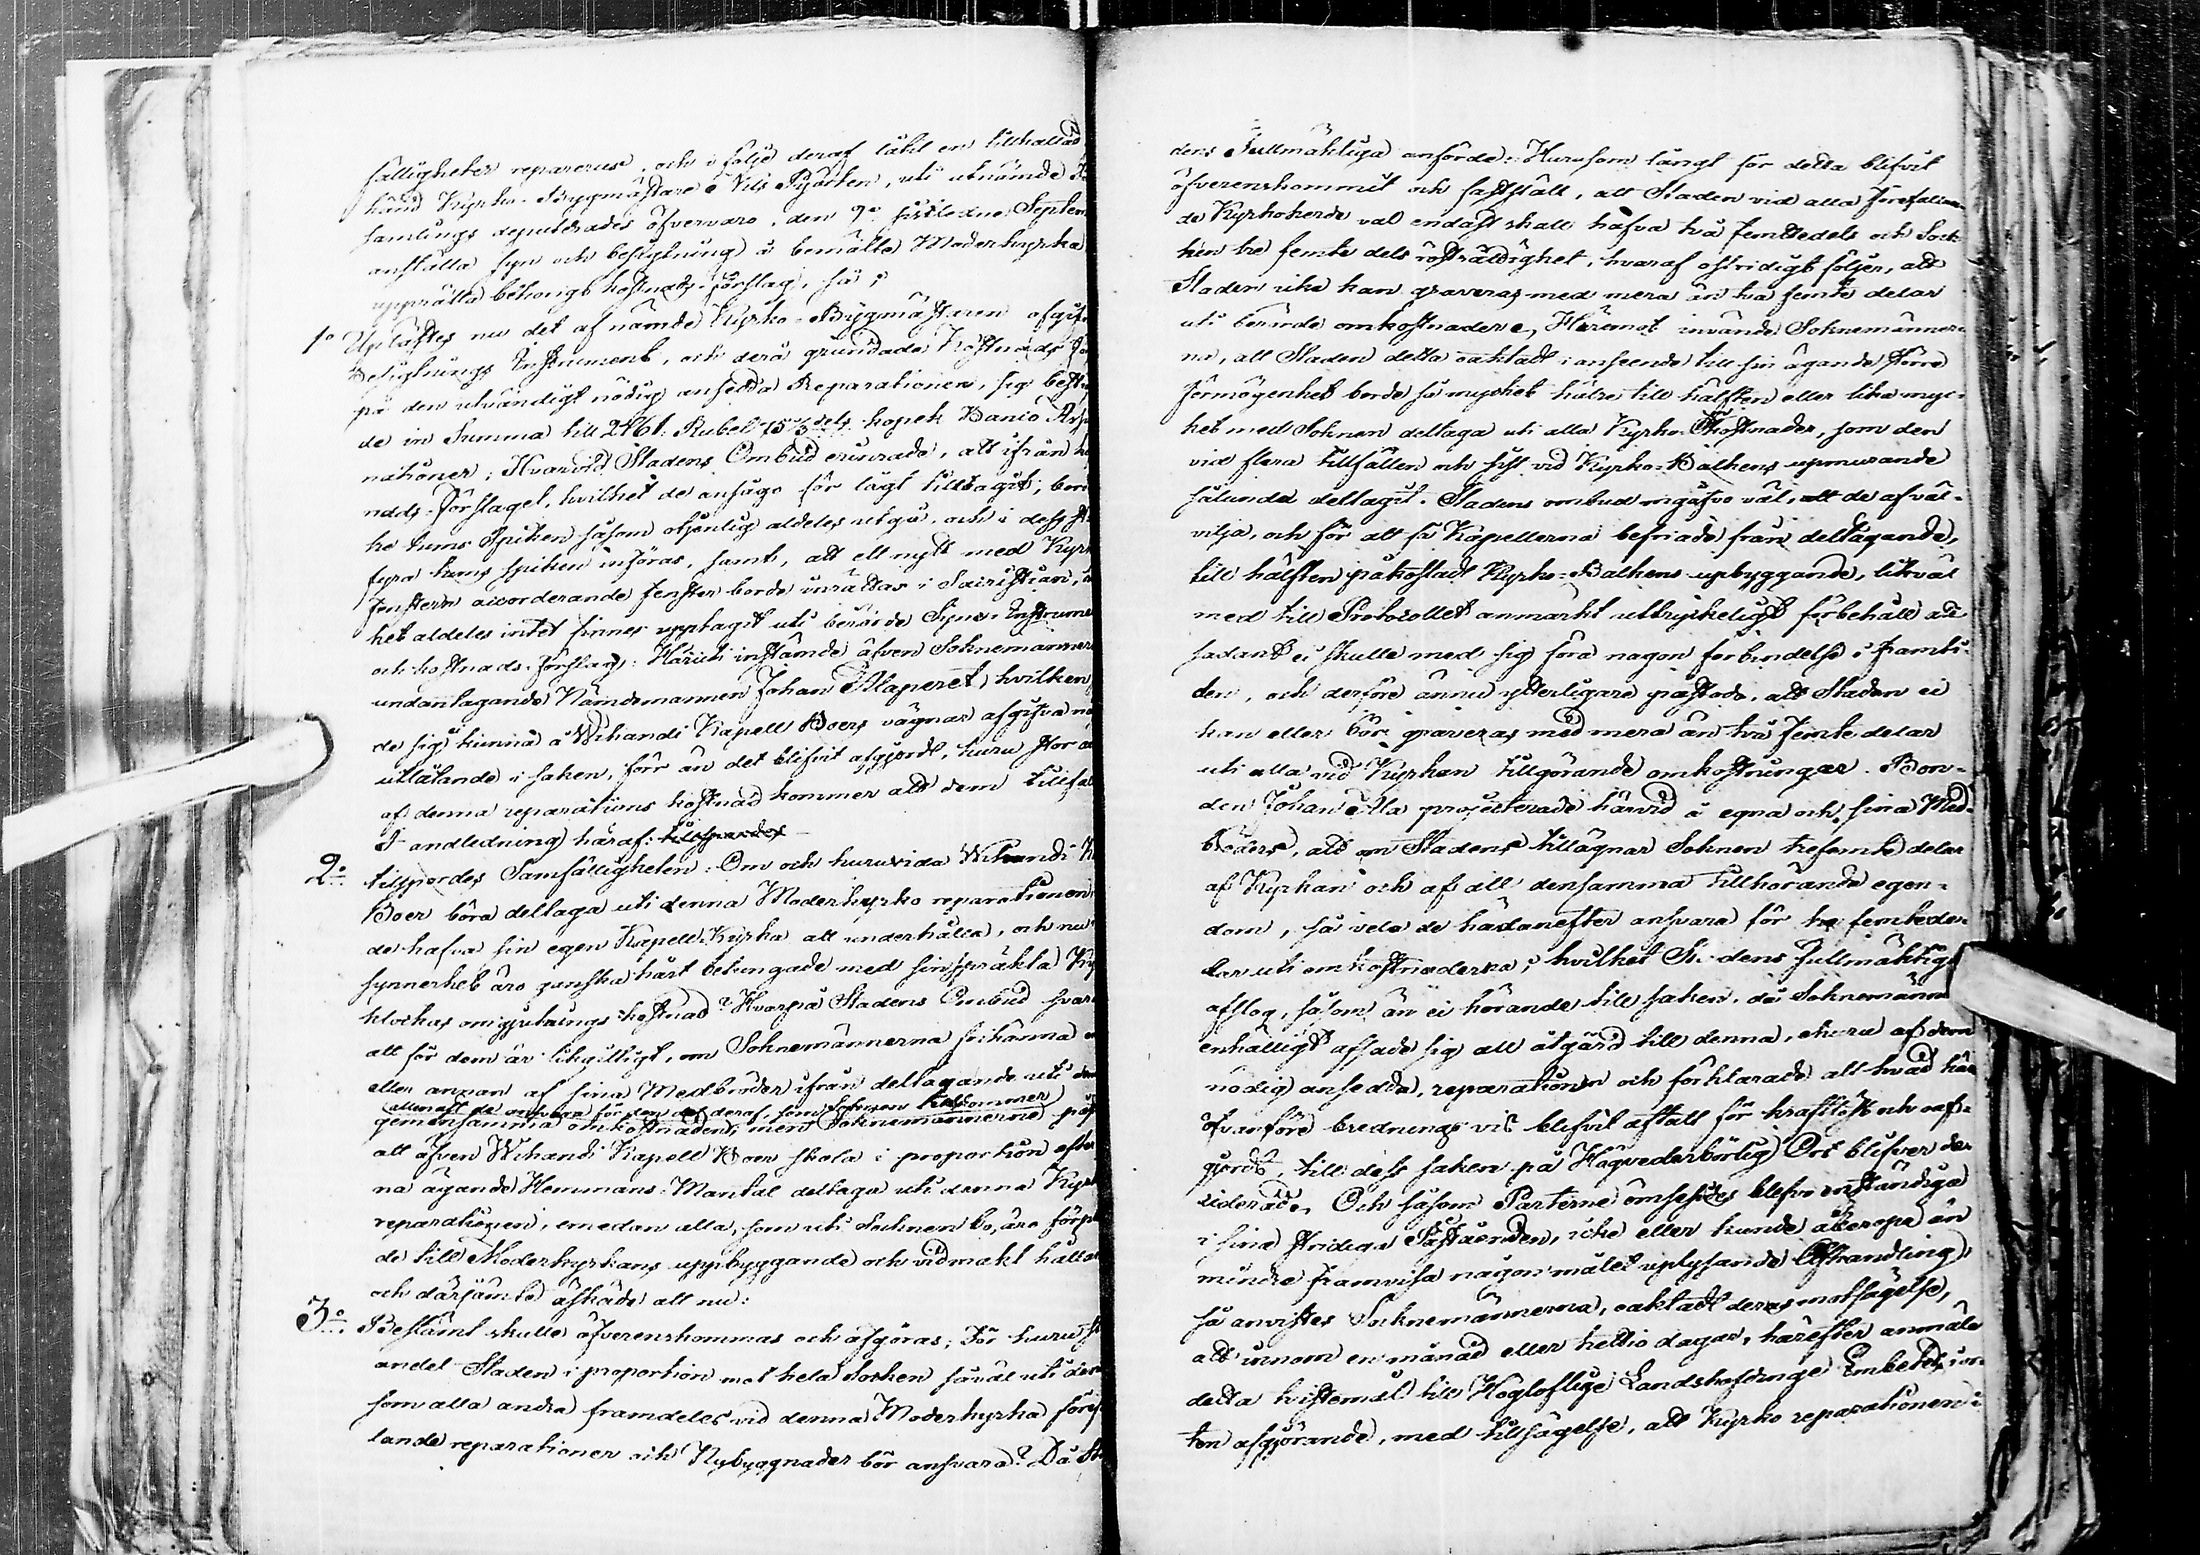 fälligheter repareras, och i följe deraf låtit en tillkallad
känd Kyrko-Byggmästare Nils Sjösten, uti utnämde
samlings deputerades öfvervaro, den 9de sistledne Septem
anställa syn och besigtning å bemälte Moderkyrka
upprätta behörigt kostnads förslag, så;
1o Uplästes nu det af nämde Kyrko-Byggmästaren afgif
Besigtnings Instrument, och derå grundade Kostnads för
på den utvändigt nödig ansedda Reparationen, sig bestig
de in Summa till 2461 Rubel 75 dels kopek Banco Assi
nationer; Hvarvid Stadens Ombud erinrade, att ifrån ko
nads-Förslaget, hvilket de ansågo för lågt tilltagit; bor
ke tums Spiken såsom otjenlig aldeles utgå, och i dess st
fyra tums spiken införas, samt, att ett nytt med Kyrk
fenstern accorderande fenster borde inrättas i Sacristian,
ket aldeles intet finnes upptagit uti berörde Syne-Instrume
och kostnads förslag: Häruti instämde äfven Soknemänner
undantagande Nämdemannen Johan Alaperet, hvilken
de sig kunna å Wihandi Kapell Boers vägnar afgifva nå
utlåtande i saken, förr än det blifvit afgjordt, huru stor a
af denna reparations kostnad kommer att dem tillfal
I andledning häraf: tillspordes
2o tillspordes Samfälligheten: Om och huruvida Wihandi K
Boer böra deltaga uti denna Moderkyrko reparationen
de hafva sin egen Kapell Kyrka att underhålla, och nu
synnerhet äro ganska hårt betungade med sin spräkta Ky
klockas omgjutnings kostnad? Hvarpå Stadens Ombud svar
att för dem är likgiltigt, om Soknemännerna förskåna e
eller annan af sina Medbröder ifrån deltagande uti den
allenast de ansvara för den del deraf, som Soknen tillkommer
gemensamma omkostnaden; men Soknemännerne på
att äfven Wihandi Kapell Boer skola i proportion efter
na ägande Hemmans-Mantal deltaga uti denna Kyrk
reparationen, emedan alla, som uti Socknen bo, äro förpl
de till Moderkyrkans uppbyggande och vidmakt hållan
och därjämte äskade att nu:
3o Bestämt skulle öfverenskommas och afgöras; För huru st
andel Staden i proportion mot hela Socken såväl uti den
som alla andra framdeles vid denna Moderkyrka föref
lande reparationer och Nybyggnader bör ansvara? Då St
dens Fullmäktiga anförde: Hurusom långt för detta blifvit
öfverenskommit och faststält, att Staden vid alla förefallan
de Kyrkoherde val endast skall hafva två femtedels och Sock
nen tre femte dels rösträttighet, hvaraf ostridigt följer, att
Staden icke kan graveras med mera än två femte delar
uti berörde omkostnader; Häremot invände Soknemänner
na, att Staden detta oaktadt i anseende till sin ägande större
förmögenhet borde så mycket hälre till hälften eller lika myc-
ket med Soknen deltaga uti alla Kyrko-Kostnader, som den
vid flera tillfällen och sist vid Kyrko-Balkens upmurande
sålunda deltagit. Stadens ombud ingåfvo väl, att de af väl-
vilja, och för att få Kapellerna befriade från deltagande,
till hälften påkostadt Kyrko-Balkens upbyggande, likväl
med till Protocollet anmärkt uttryckeligt förbehåll att
sadant ei skulle med sig föra nagon förbindelse i framti-
den, och derföre ännu ytterligare påstode, att Staden ei
kan eller bör graveras med mera än två femte delar
uti alla vid Kyrkan tillgörande omkostningar. Bon-
den Johan Ala projecterade härvid å egna och sina Med-
bröders, att om Stadens tillägnar Soknen trefemte delar
af Kyrkan och af all densamma tillhörande egen-
dom, så vela de hädanefter ansvara för tre femtede-
lar uti omkostnaderna; hvilket Sta dens Fullmäktige
afslog, såsom än ei hörande till saken, då Soknemänner
enhälligt afsade sig all åtgärd till denna, ehuru af dem
nödig ansedda, reparationen och förklarade att hvad här
ofvanföre brednings vis blifvit aftalt för kraftlöst och oaf-
gjordt till dess saken på Högvederbörlig Ort blifver de-
ciderade. Och såsom Parterne ömsesides blefvo enständiga
i sina stridiga Påståenden, icke eller kunde åberopa än
mindre framvisa någon målet uplysande Afhandling;
så anvistes Socknemännerna, oaktadt deras motsägelse,
att innom en månad eller trettio dagar, härefter anmäla
detta tvistemål till Höglofliga Landshöfdinge Embetets i or-
ten afgjörande, med tillsägelse, att Kyrko reparationen i